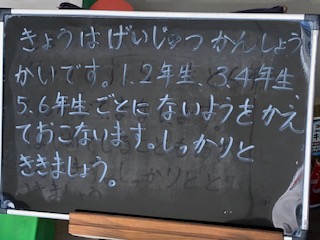 きょうは げいじゅつ かんしょう
かいです。1.2年生、3.4年生、
5.6年生ごとに ないようを かえ
ておこないます。しっかりと
ききましょう。